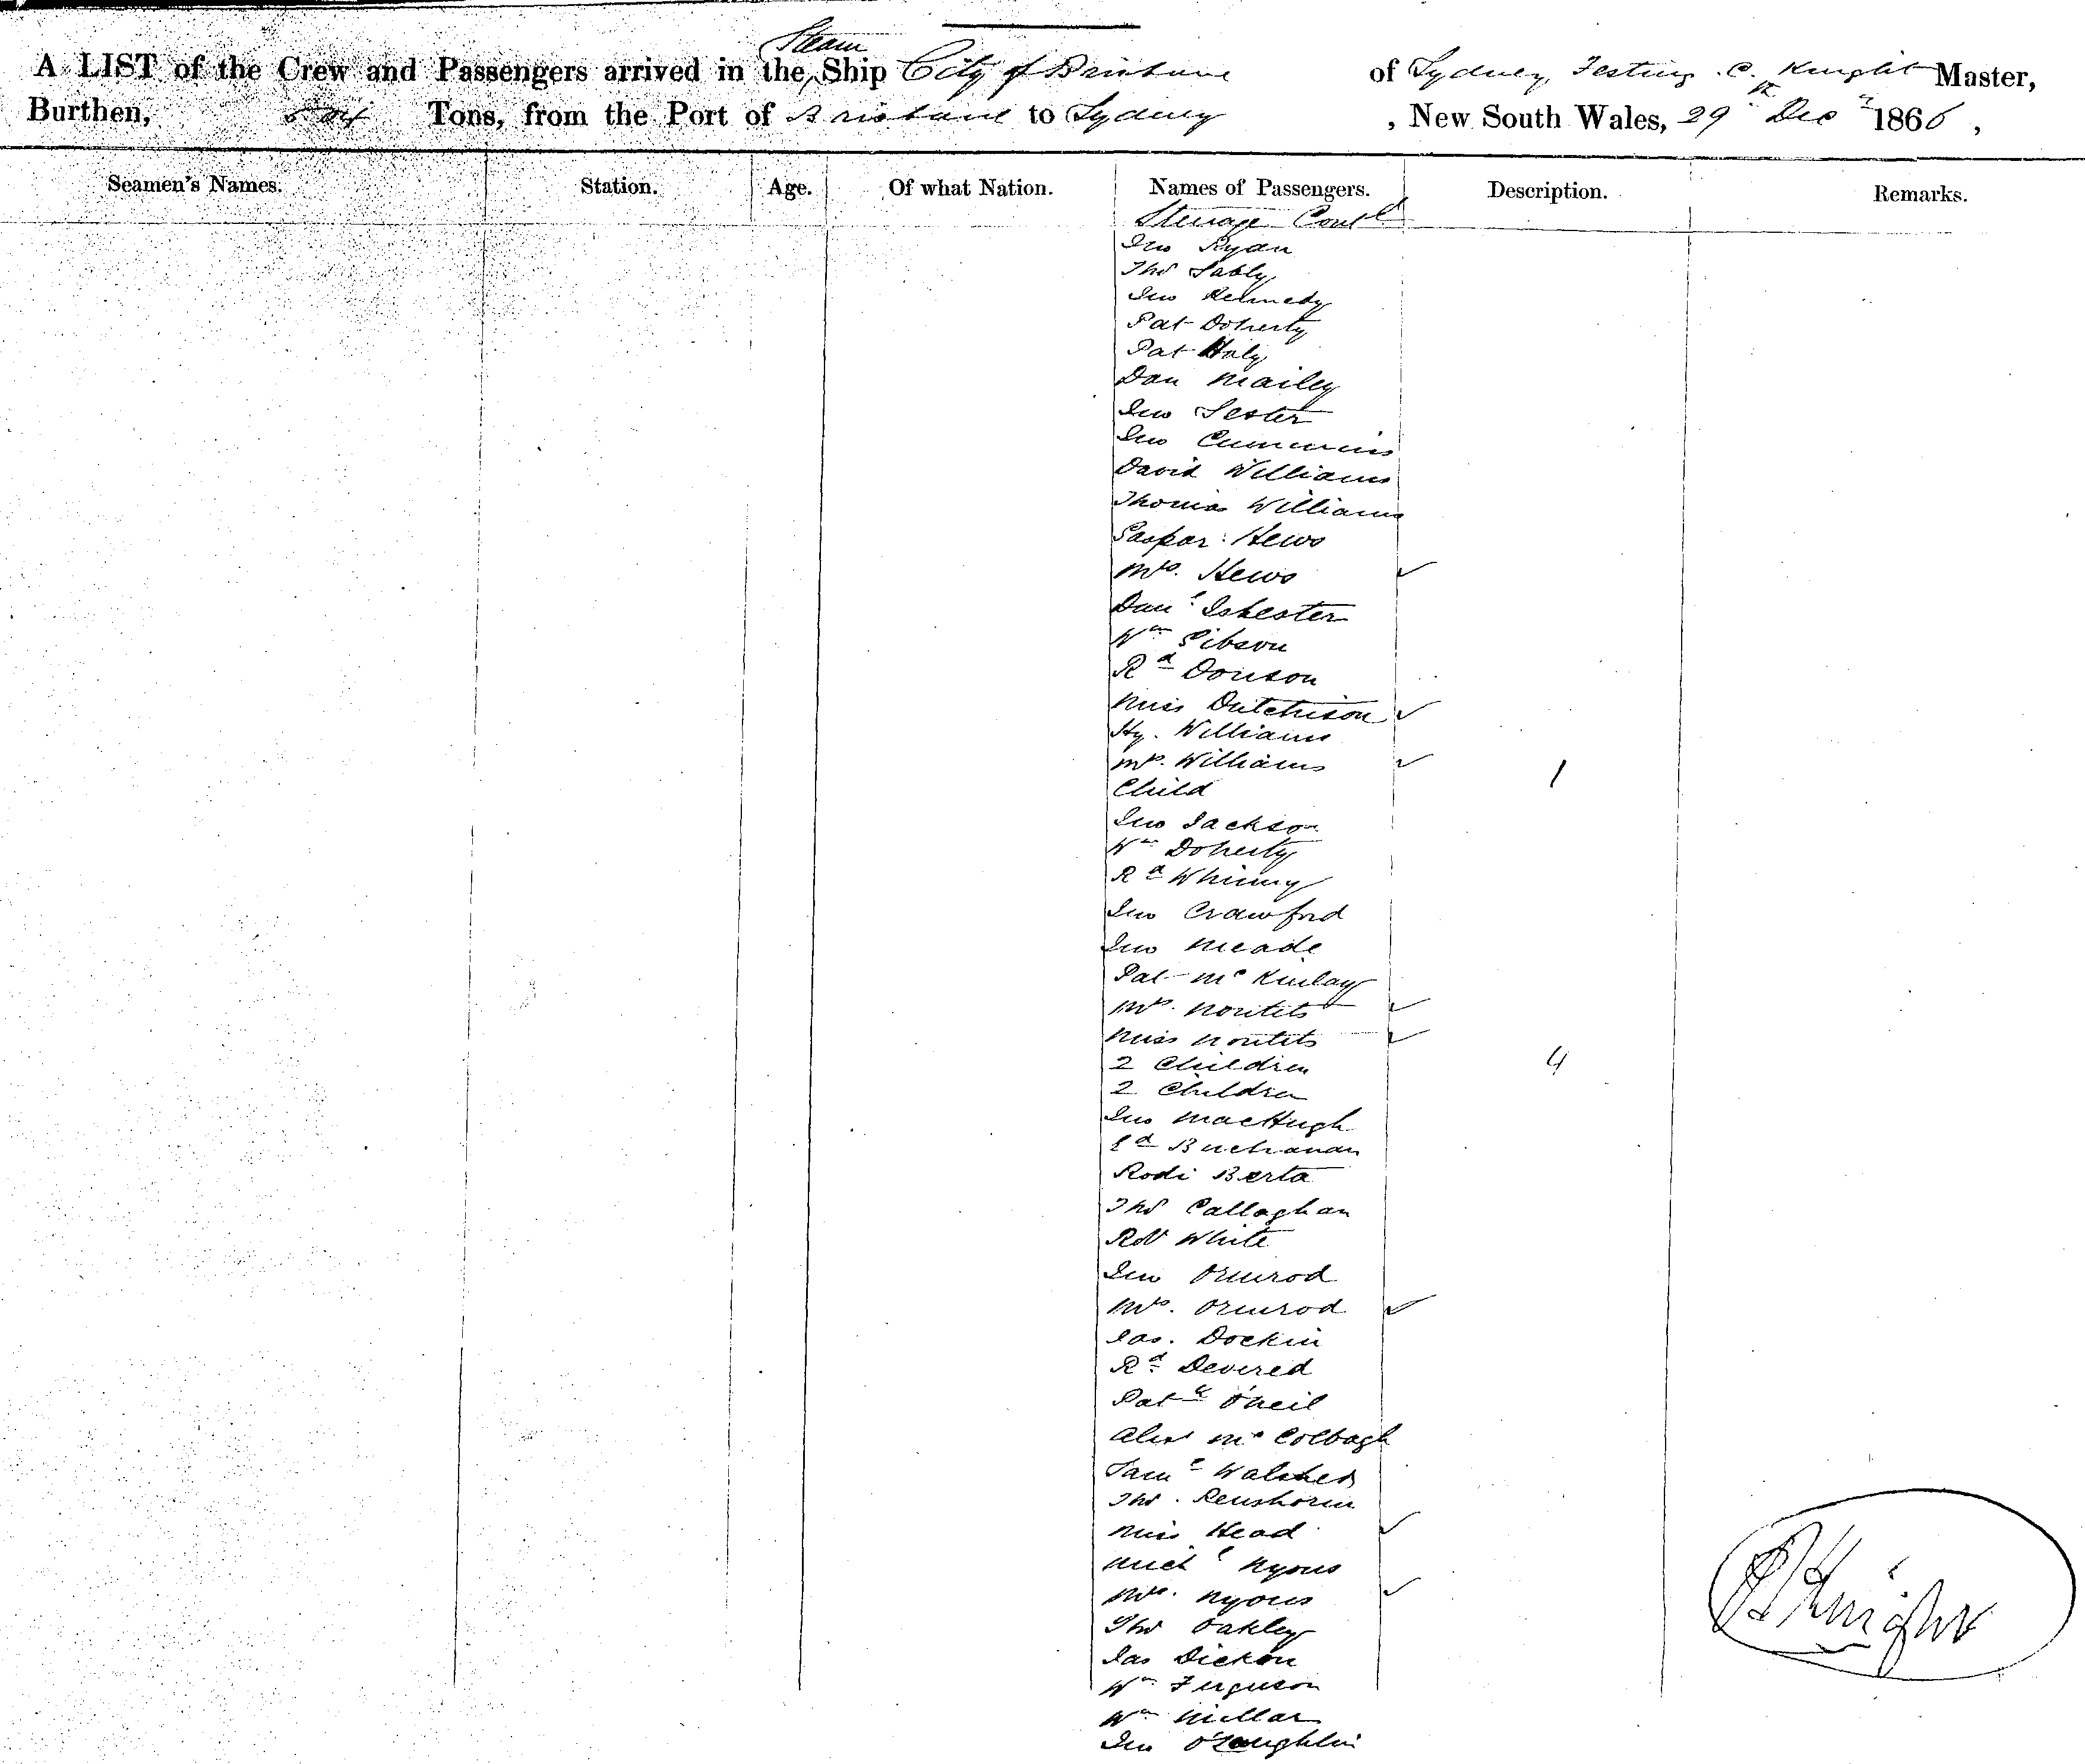 Steam
A LIST of the Crew and Passengers arrived in the Ship City of Brisbane of Sydney, Festing. C. Knight Master,
Burthen, Tons, from the Port of Brisbane to Sydney, New South Wales, 29th Decr 1866,
Seamen's Names. Station. Age. Of what Nation. Names of Passengers. Description. Remarks.
Steerage Contd
Jno Ryan
Thos
Jno Kennedy
Pat Doherty
Pat Haly
Dan Mailey
Jno Lester
Jno Cummins
David Williams
Thomas Williams
Gaspar Hews
Mrs. Hews
Danl Isbester
Wm Gibson
Rd Donson
Miss Dutchison
Hy. Williams
Mrs. Williams 1
Child
Jno Jackson
Wm Doherty
Rd Whinny
Jno Crawford
Jno Meade
Pat McKinlay
Mrs. Nontits
Miss Nontits
2 Children 4
2 Children
Jno MacHugh
Ed Buchanan
Rodi Berta
Thos Callaghan
Robt White
Jno Ormrod
Mrs. Ormrod
Jas. Dockin
Rd Devered
Patk O'Neil
Alexr McColbagh
Saml
Thos.
Miss Head
Michl Nyous
Mrs. Nyous
Thos Oakley
Jas Dickon
Wm Ferguson
Wm Millar
Jno O'Loughlin
Knight